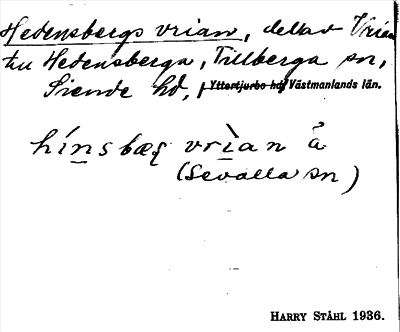 Hedensbergs vrian, del av Vrian
till Hedensberga, Tillberga sn,
Siende hd, Yttertjurbo hd, Västmanlands län.
hínsbæɽ vrìan å
(Sevalla sn)
HARRY STÅHL 1936.